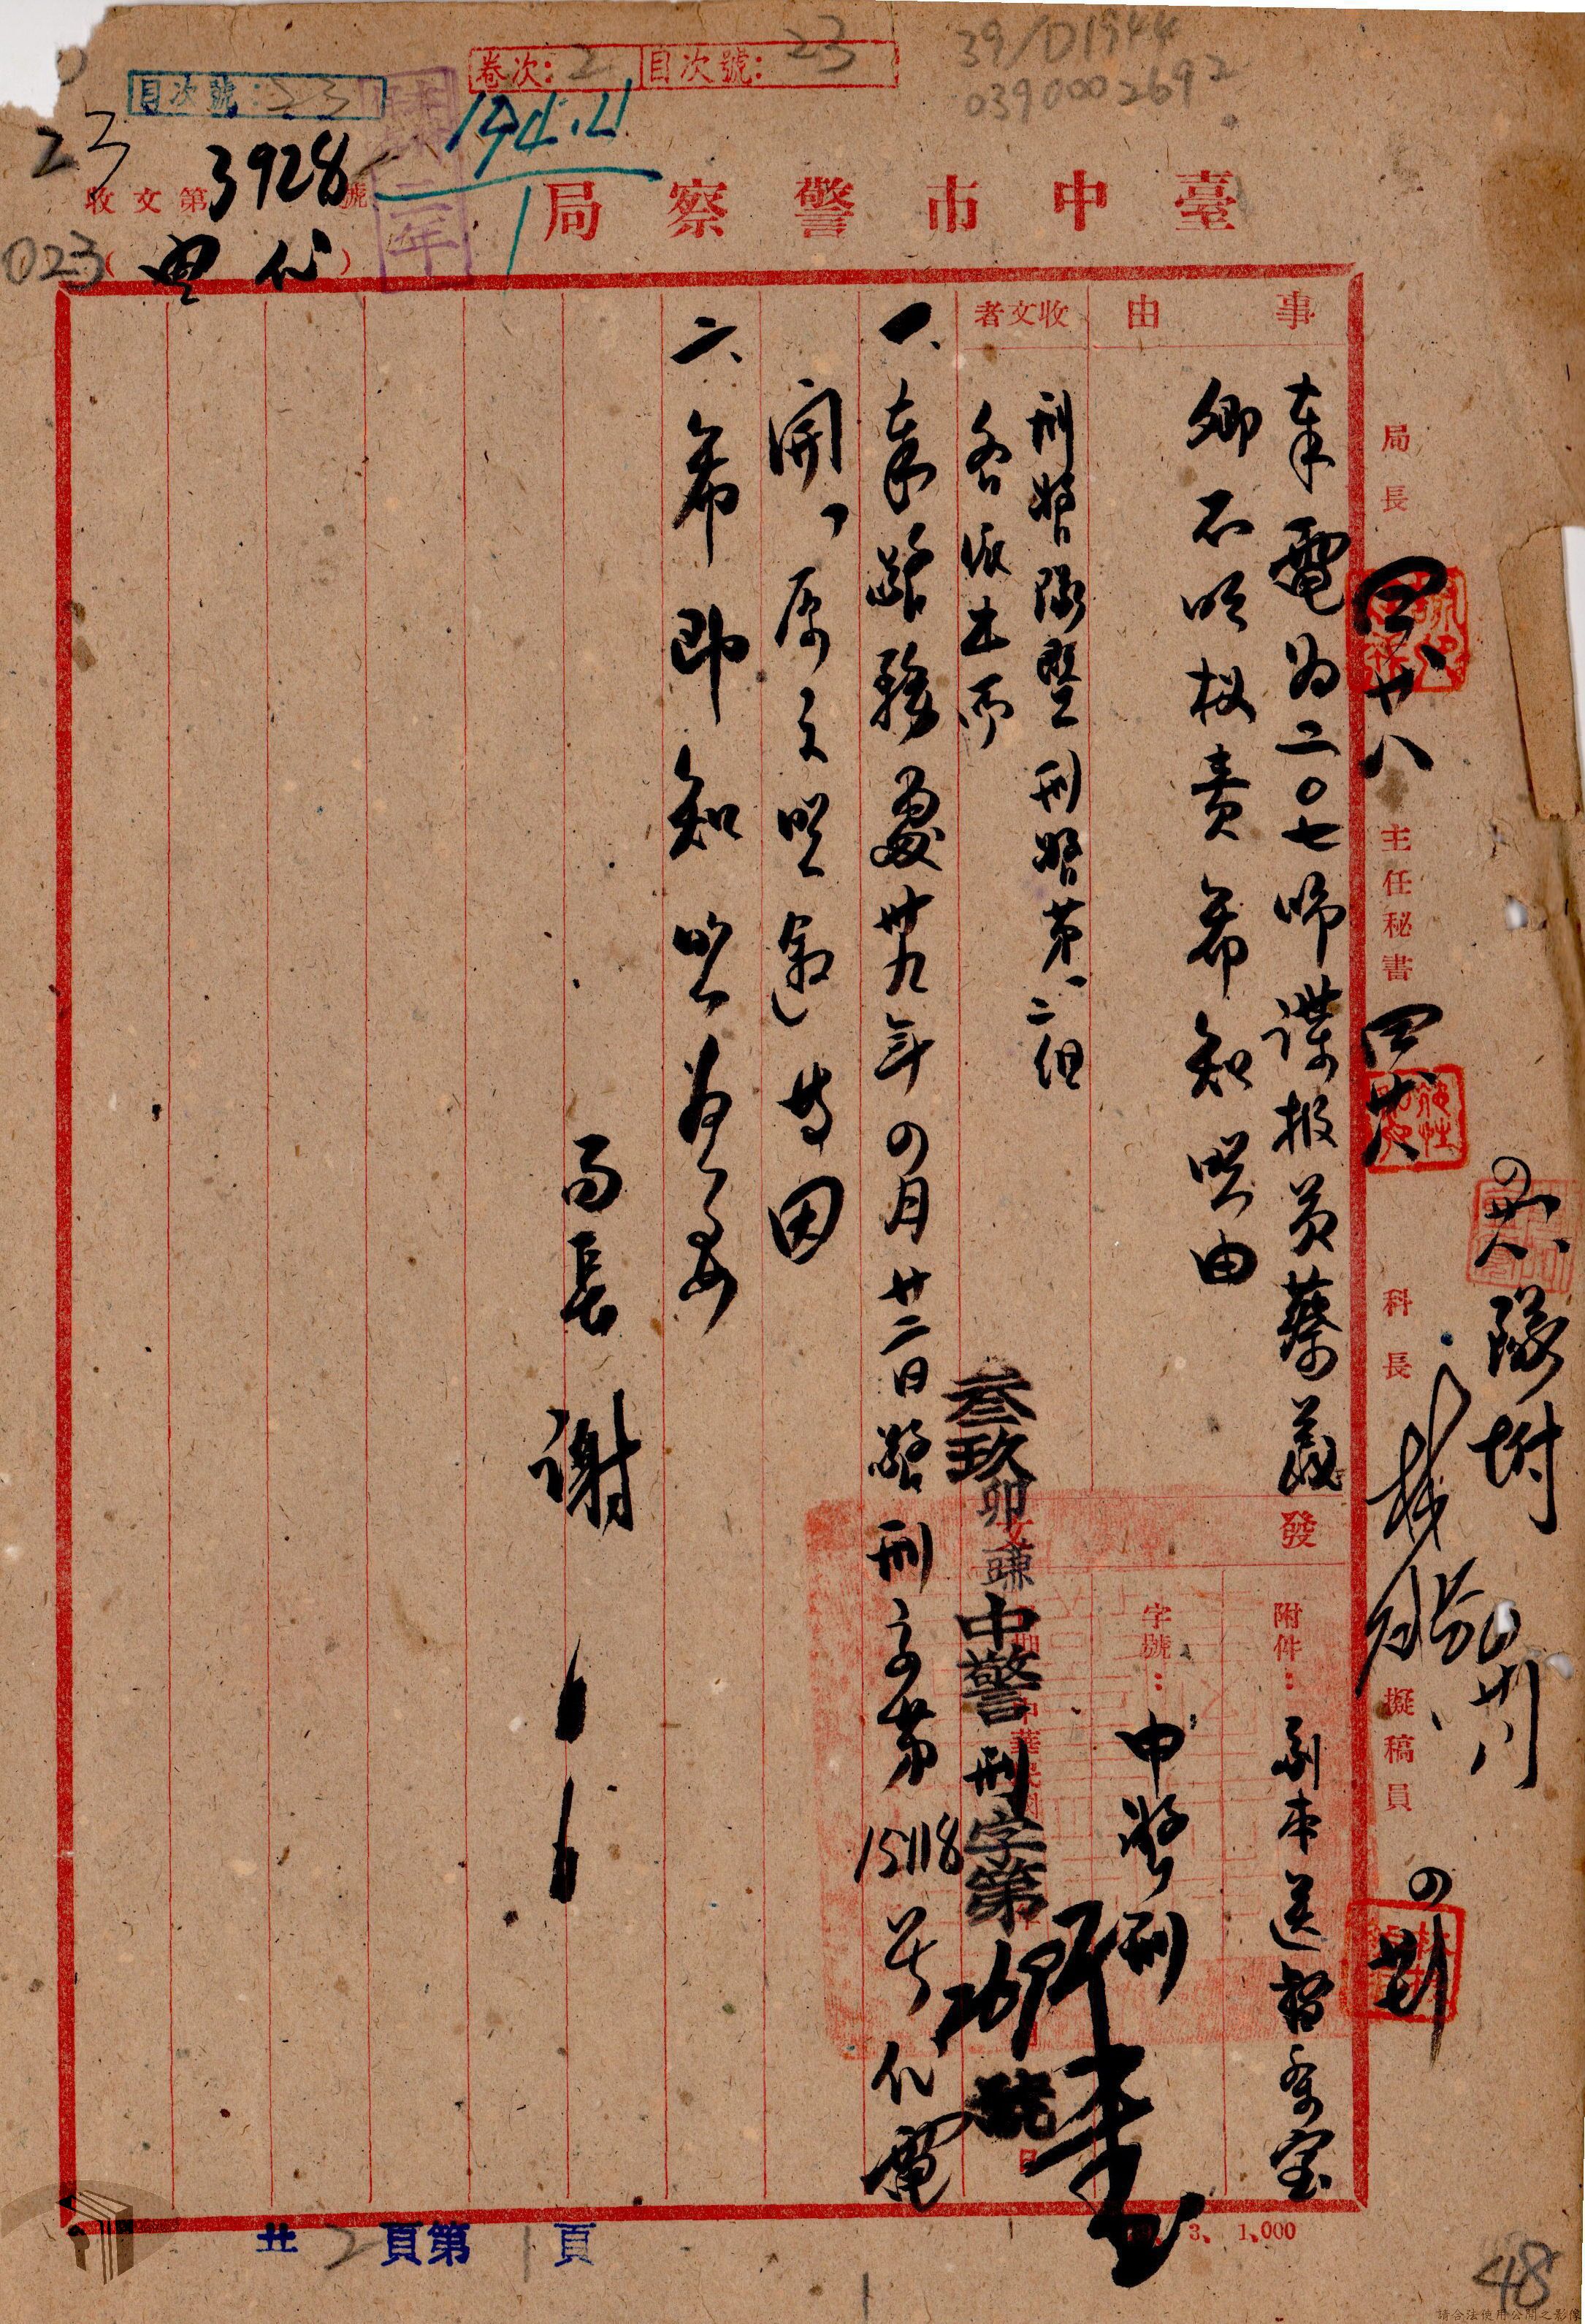 卷次：2 目次號：23
39/D1944
0390002692
目次號：23
194.11
1
23
收文第3928號
023
（代）
臺中市警察局
事由
奉電為二〇七師諜報員蔡義
卿不明权責希知照由
收文者
刑警隊暨刑警第一二組
各派出所
發文
附件：副本送督察室
字號：中警刑
叁玖卯 中警刑字第 號
一、奉警務處卅九年四月廿二日警刑字第15118号代電
開「原文照叙」等因
二、希即知照為要
局長 謝
局長
主任秘書
科長
擬稿員
隊附
3、1,000
共2頁第1頁
48
請合法使用公開之影像